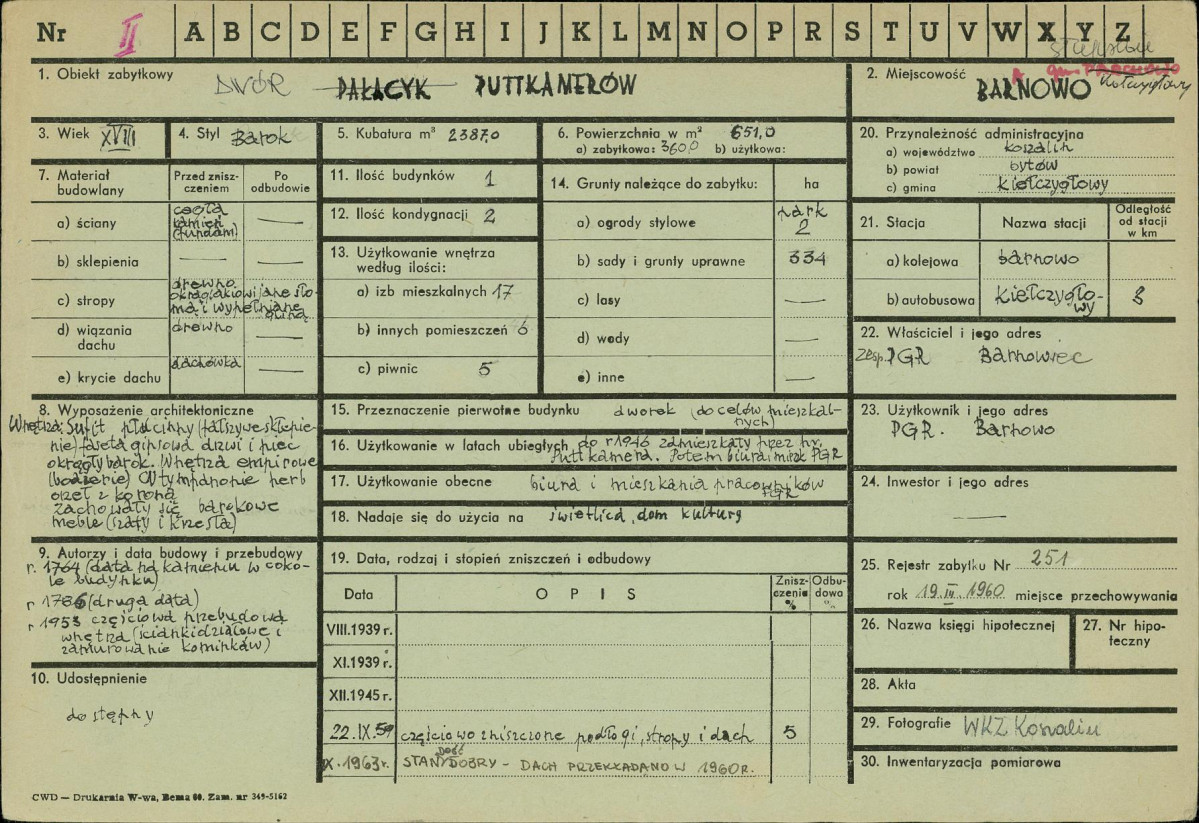 Nr II A B C D E F G H I J K L M N O P R S T U V W X Y Z
słupskie
1. Obiekt zabytkowy DWÓR PAŁACYK PUTTKAMERÓW
2. Miejscowość BARNOWO
gm.
Kołczygłowy
3. Wiek XVIII
4. Styl Barok
5. Kubatura m³ 2387,0
6. Powierzchnia w m² 651,0
a) zabytkowa: 360,0 b) użytkowa:
20. Przynależność administracyjna
a) województwo koszalin
b) powiat bytów
c) gmina Kiełczygłowy
7. Materiał budowlany
Przed znisz-
czeniem
Po
odbudowie
a) ściany
cegła
kamień
(fundam)
b) sklepienia
c) stropy
drewno
okrąglaki owijane sło-
mą i wypełniane
gliną
d) wiązania
dachu
drewno
e) krycie dachu
dachówka
11. Ilość budynków 1
12. Ilość kondygnacji 2
13. Użytkowanie wnętrza
według ilości:
a) izb mieszkalnych 17
b) innych pomieszczeń 6
c) piwnic 5
14. Grunty należące do zabytku: ha
a) ogrody stylowe park
2
b) sady i grunty uprawne 334
c) lasy
d) wody
e) inne
21. Stacja
Nazwa stacji
Odległość
od stacji
w km
a) kolejowa barnowo
b) autobusowa Kiełczygło-
wy 8
22. Właściciel i jego adres
Zesp. PGR Barnowiec
8. Wyposażenie architektoniczne
Wnętrza: Sufit płócienny (fałszywe sklepie-
nie) faseta gipsowa drzwi i piec
okrągły barok. Wnętrza empirowe
(boazerie) W tympanonie herb
orzeł z koroną
zachowały się barokowe
meble (szafy i krzesła)
15. Przeznaczenie pierwotne budynku dworek (do celów mieszkal-
nych)
16. Użytkowanie w latach ubiegłych do r 1946 zamieszkały przez hr.
Puttkamera. Potem biura i mieszk PGR
17. Użytkowanie obecne biura i mieszkania pracowników
PGR
18. Nadaje się do użycia na świetlica, dom kultury
23. Użytkownik i jego adres
PGR. Barnowo
24. Inwestor i jego adres
9. Autorzy i data budowy i przebudowy
r. 1764 (data na kamieniu w coko-
le budynku)
r 1786 (druga data)
r 1953 częściowa przebudowa
wnętrza (ścianki działowe i
zamurowanie kominków)
19. Data, rodzaj i stopień zniszczeń i odbudowy
Data
O P I S
Znisz-
czenia
%
Odbu-
dowa
%
VIII.1939 r.
XI.1939 r.
XII.1945 r.
22.IX.59 częściowo zniszczone podłogi, stropy i dach 5
X.1963 r. STAN DOŚĆ DOBRY – DACH PRZEKŁADANO W 1960 R.
25. Rejestr zabytku Nr 251
rok 19.IV.1960 miejsce przechowywania
26. Nazwa księgi hipotecznej
27. Nr hipo-
teczny
28. Akta
29. Fotografie WKZ Koszalin
30. Inwentaryzacja pomiarowa
10. Udostępnienie
dostępny
CWD — Drukarnia W-wa, Bema 60. Zam. nr 349-5162